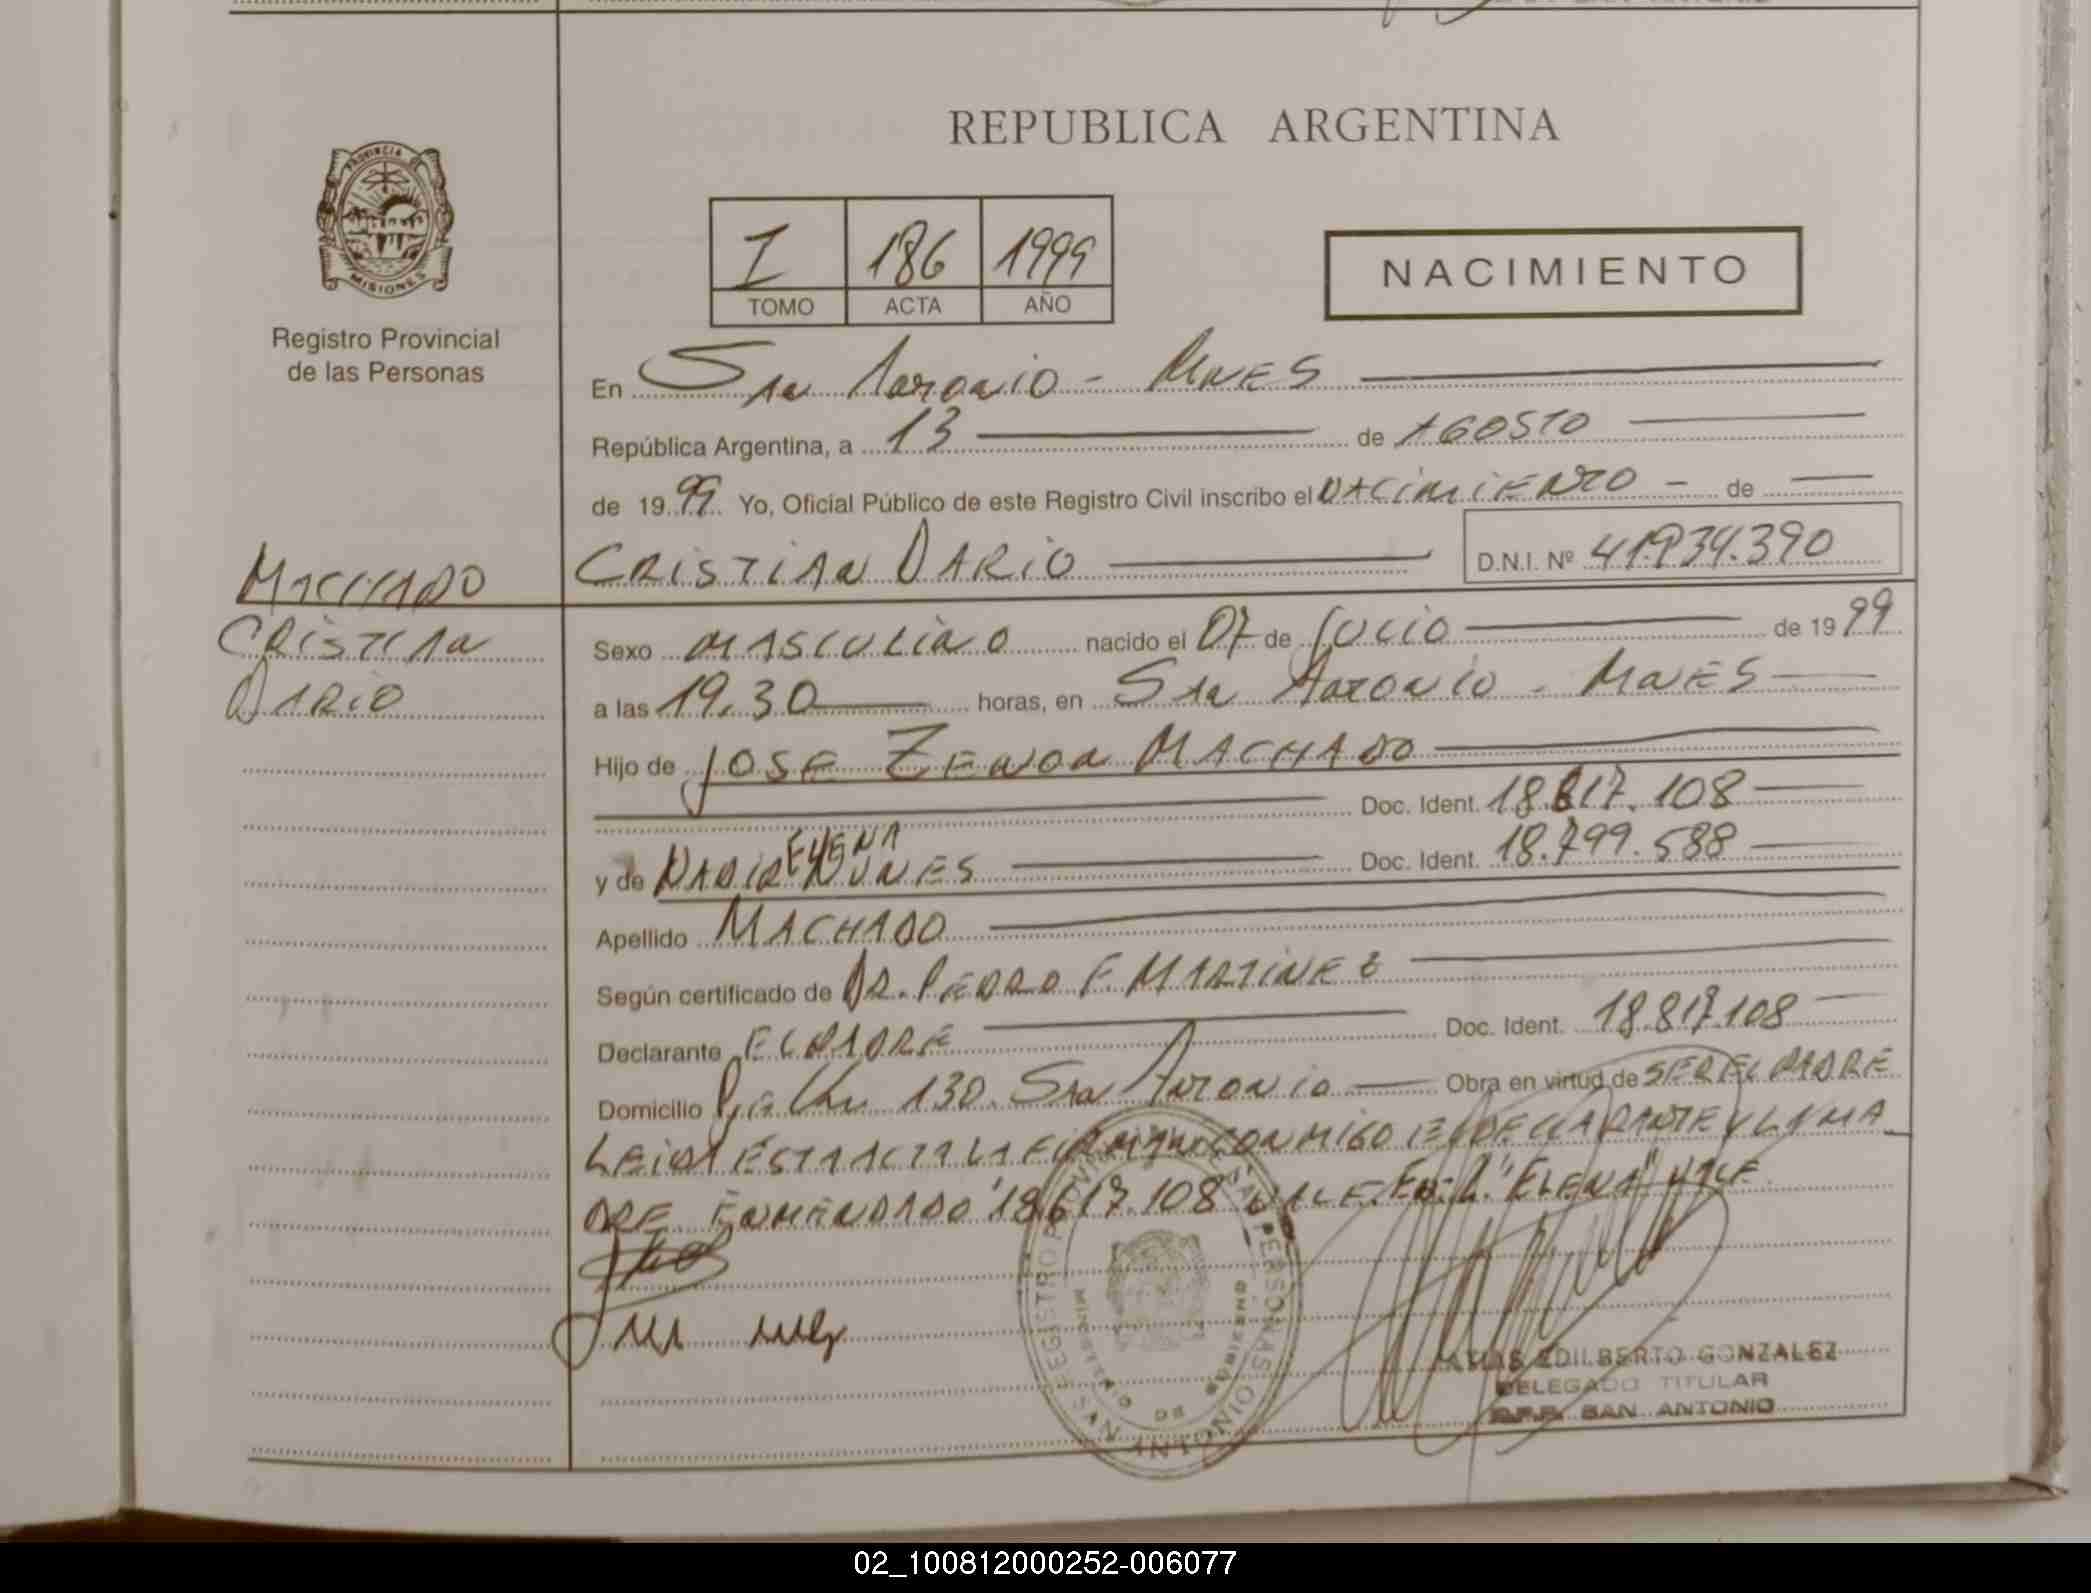 REPUBLICA ARGENTINA
PROVINCIA DE
MISIONES
Registro Provincial
de las Personas
I 186 1999
TOMO ACTA AÑO
NACIMIENTO
En San Antonio - Mnes
República Argentina, a 13 de AGOSTO
de 1999 Yo, Oficial Público de este Registro Civil inscribo el NACIMIENTO - de
CRISTIAN DARIO D.N.I. Nº 41.934.390
MACHADO
CRISTIAN
DARIO
Sexo MASCULINO nacido el 07 de JULIO de 1999
a las 19.30 horas, en San Antonio - Mnes
Hijo de JOSE ZENON MACHADO
Doc. Ident. 18.617.108
ELENA
y de NADIR NUNES Doc. Ident. 18.799.588
Apellido MACHADO
Según certificado de DR. PEDRO F. MARTINEZ
Declarante EL PADRE Doc. Ident. 18.817.108
Domicilio 130. San Antonio Obra en virtud de SER EL PADRE
LEIDA ESTA ACTA LA FIRMAN CONMIGO EL DECLARANTE Y LA MA
DRE. ENMENDADO "18.617.108" VALE. "ELENA" VALE
EDILBERTO GONZALEZ
DELEGADO TITULAR
SAN ANTONIO
02_100812000252-006077